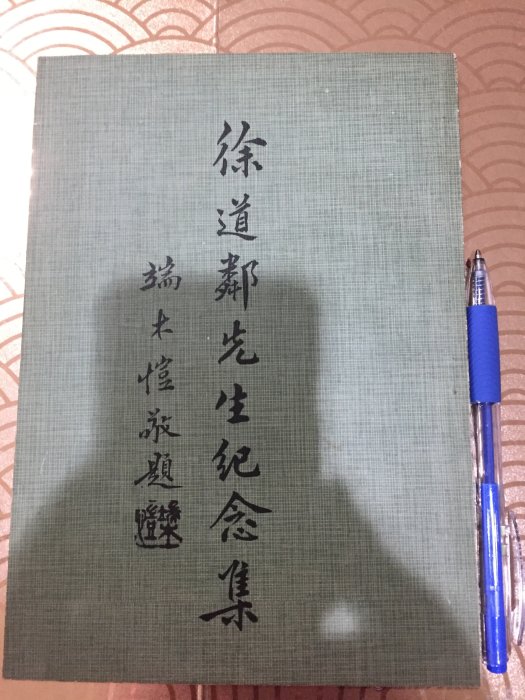 徐道鄰先生紀念集
端木愷敬題